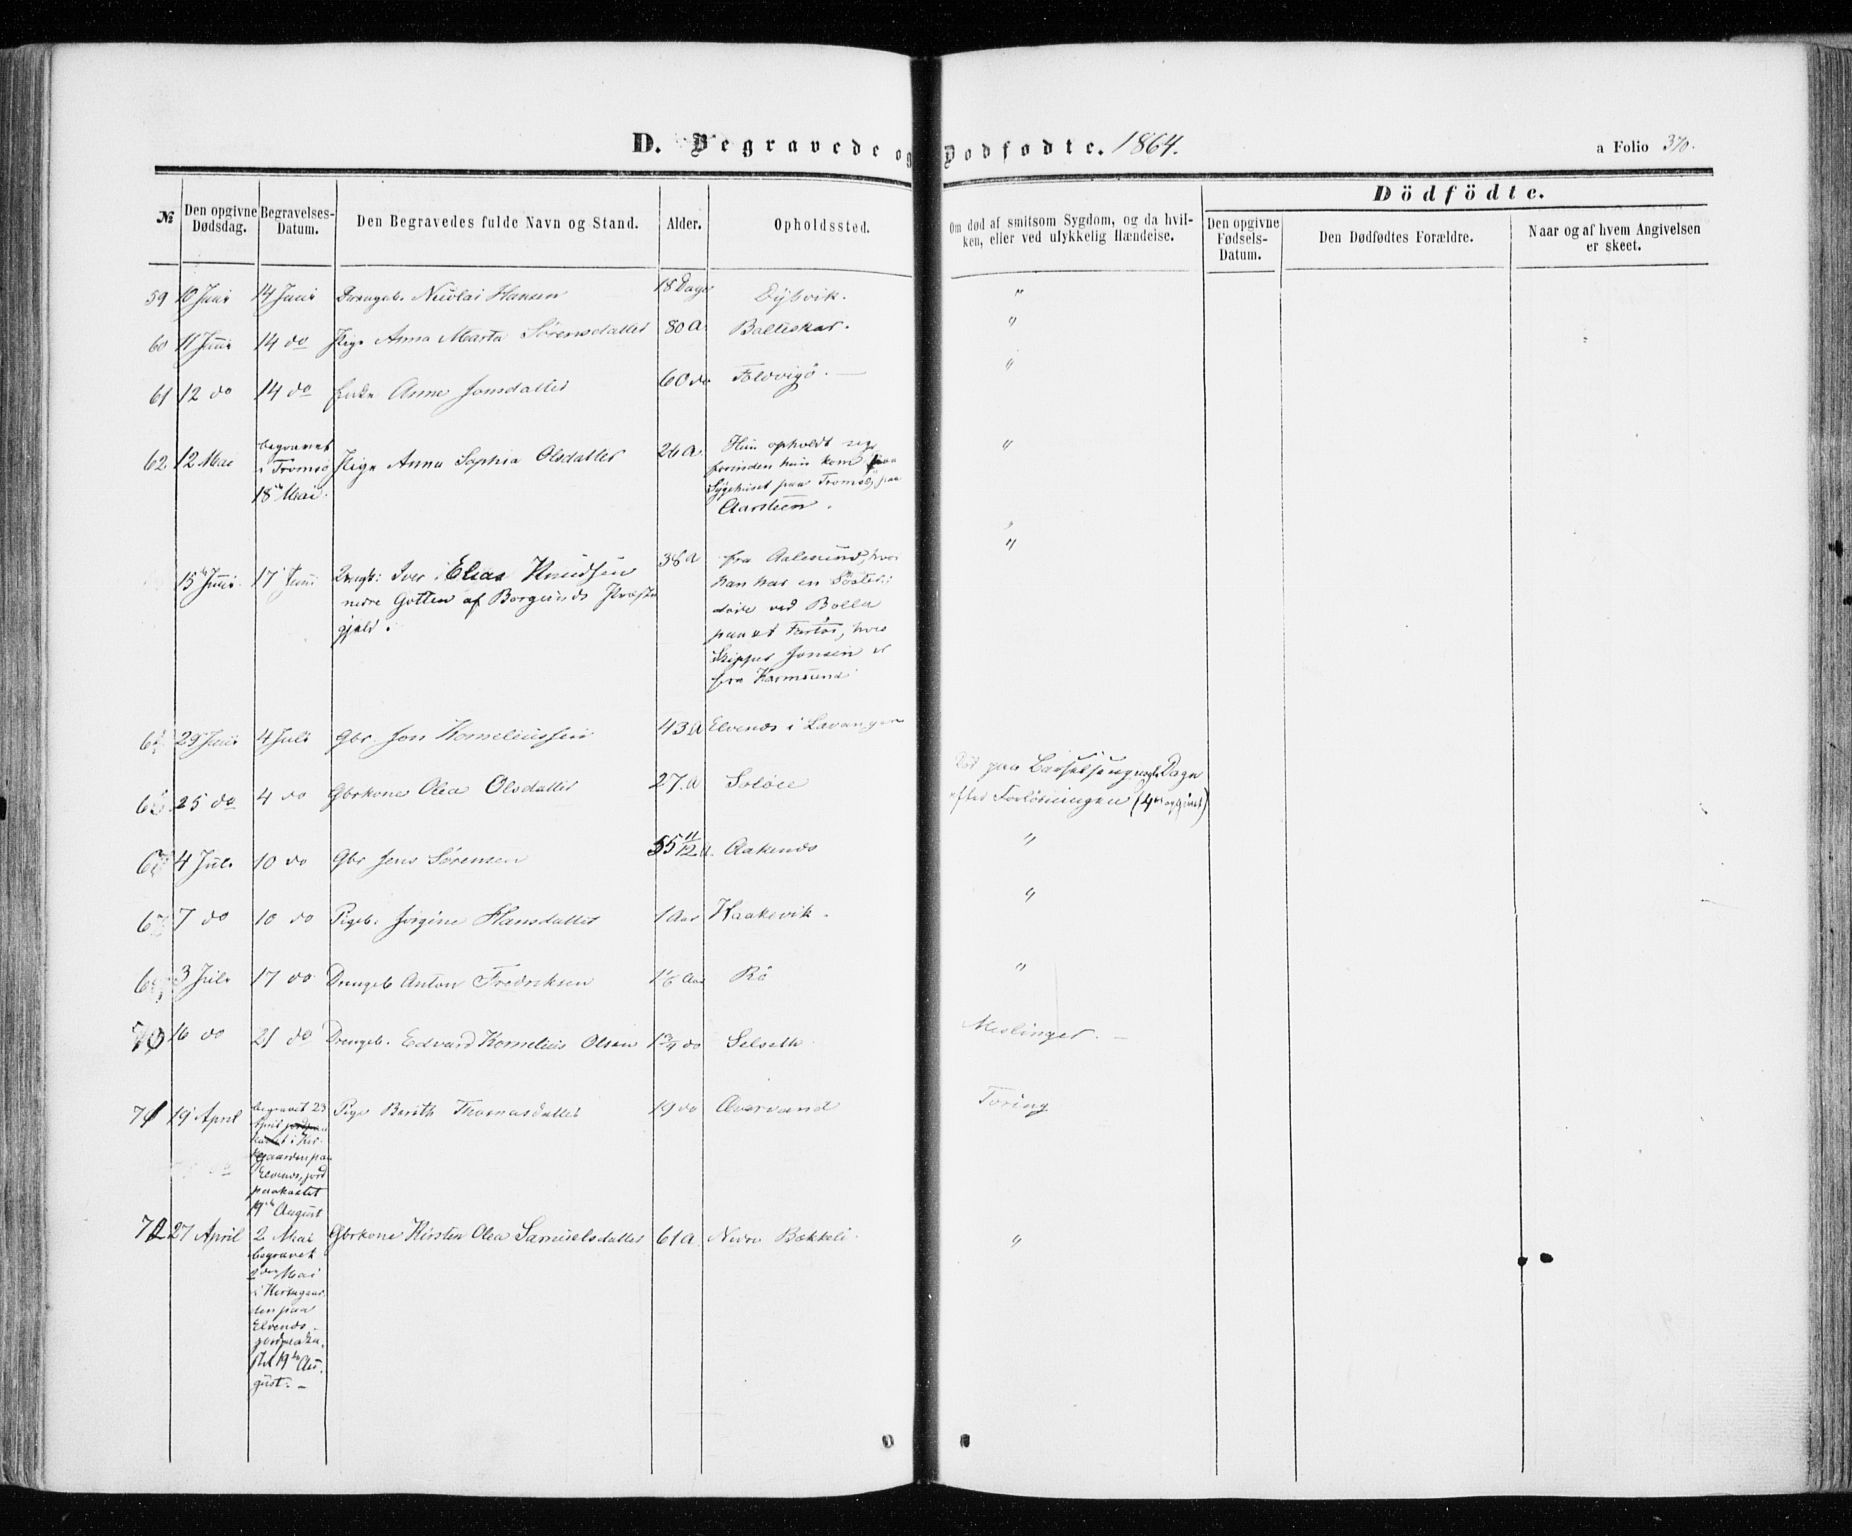 D. Begravede og Dødfødte. 1864.
a Folio 370.
Dödfödte.
№
Den opgivne Dødsdag.
Begravelses-Datum.
Den Begravedes fulde Navn og Stand.
Alder.
Opholdssted.
Om død af smitsom Sygdom, og da hvilken, eller ved ulykkelig Hændelse.
Den opgivne Fødsels-Datum.
Den Dødfødtes Forældre.
Naar og af hvem Angivelsen er skeet.
59 10 Juni 14 Juni Drengeb. Nicolai Hansen 18 Dage Dybvik. "
60 11 Juni 14 do Pige Anna Marta Sørensdatter 80 A. Balteskar. "
61 12 do 14 do Enke Anne Jonsdatter 60 do Foldvigö. "
62. 12 Mai begravet i Tromsø 18 Mai. Pige Anna Sophia Olsdatter 26 A. Hun opholdt sig
forinden hun kom paa
Sygehuset paa Tromsø, paa
Aarsteen. "
15de Juni. 17 Juni Iver Elias Knudsen 38 A fra Aalesund, hvor
nedre Gotten af Borgunds Præste
gjeld.
han har en Søster;
døde ved Bolla
paa et Fartøi, hvis
Skipper Jonsen er
fra Karmsund "
29 Juni 4 Juli Gbr Jon Korneliussen 43 A Elvenæs i Lavangen
25 do 4 do Gbrkone Olea Olsdatter 27. A Soløe Død paa Barselseng Dage
efter Forløsningen
4 Juli 10 do Gbr Jens Sørensen 55 11/12 A. Aakenæs "
7 do 10 do Pigeb. Jørgine Hansdatter 1 Aar Haakevik. "
3 Juli 17 do Drengeb Anton Fredriksen Aar Rö "
70 16 do 21 do Drengeb. Edvard Kornelius Olsen do Selseth Meslinger.
71 19 April begravet 23
April
i Kir-
gaarden paa
Elvenæs, jord
paakastet
19de August Pige Berith Thomasdatter 19 do Øvervand Tæring
72 27 April 2 Mai
begravet
2den Mai
i Kirkegaar-
den paa
Elvenæs
jordpaaka-
stet 19de Au-
gust. Gbrkone Kirsten Olea Samuelsdatter 61 A. Nedre Bækkeli "